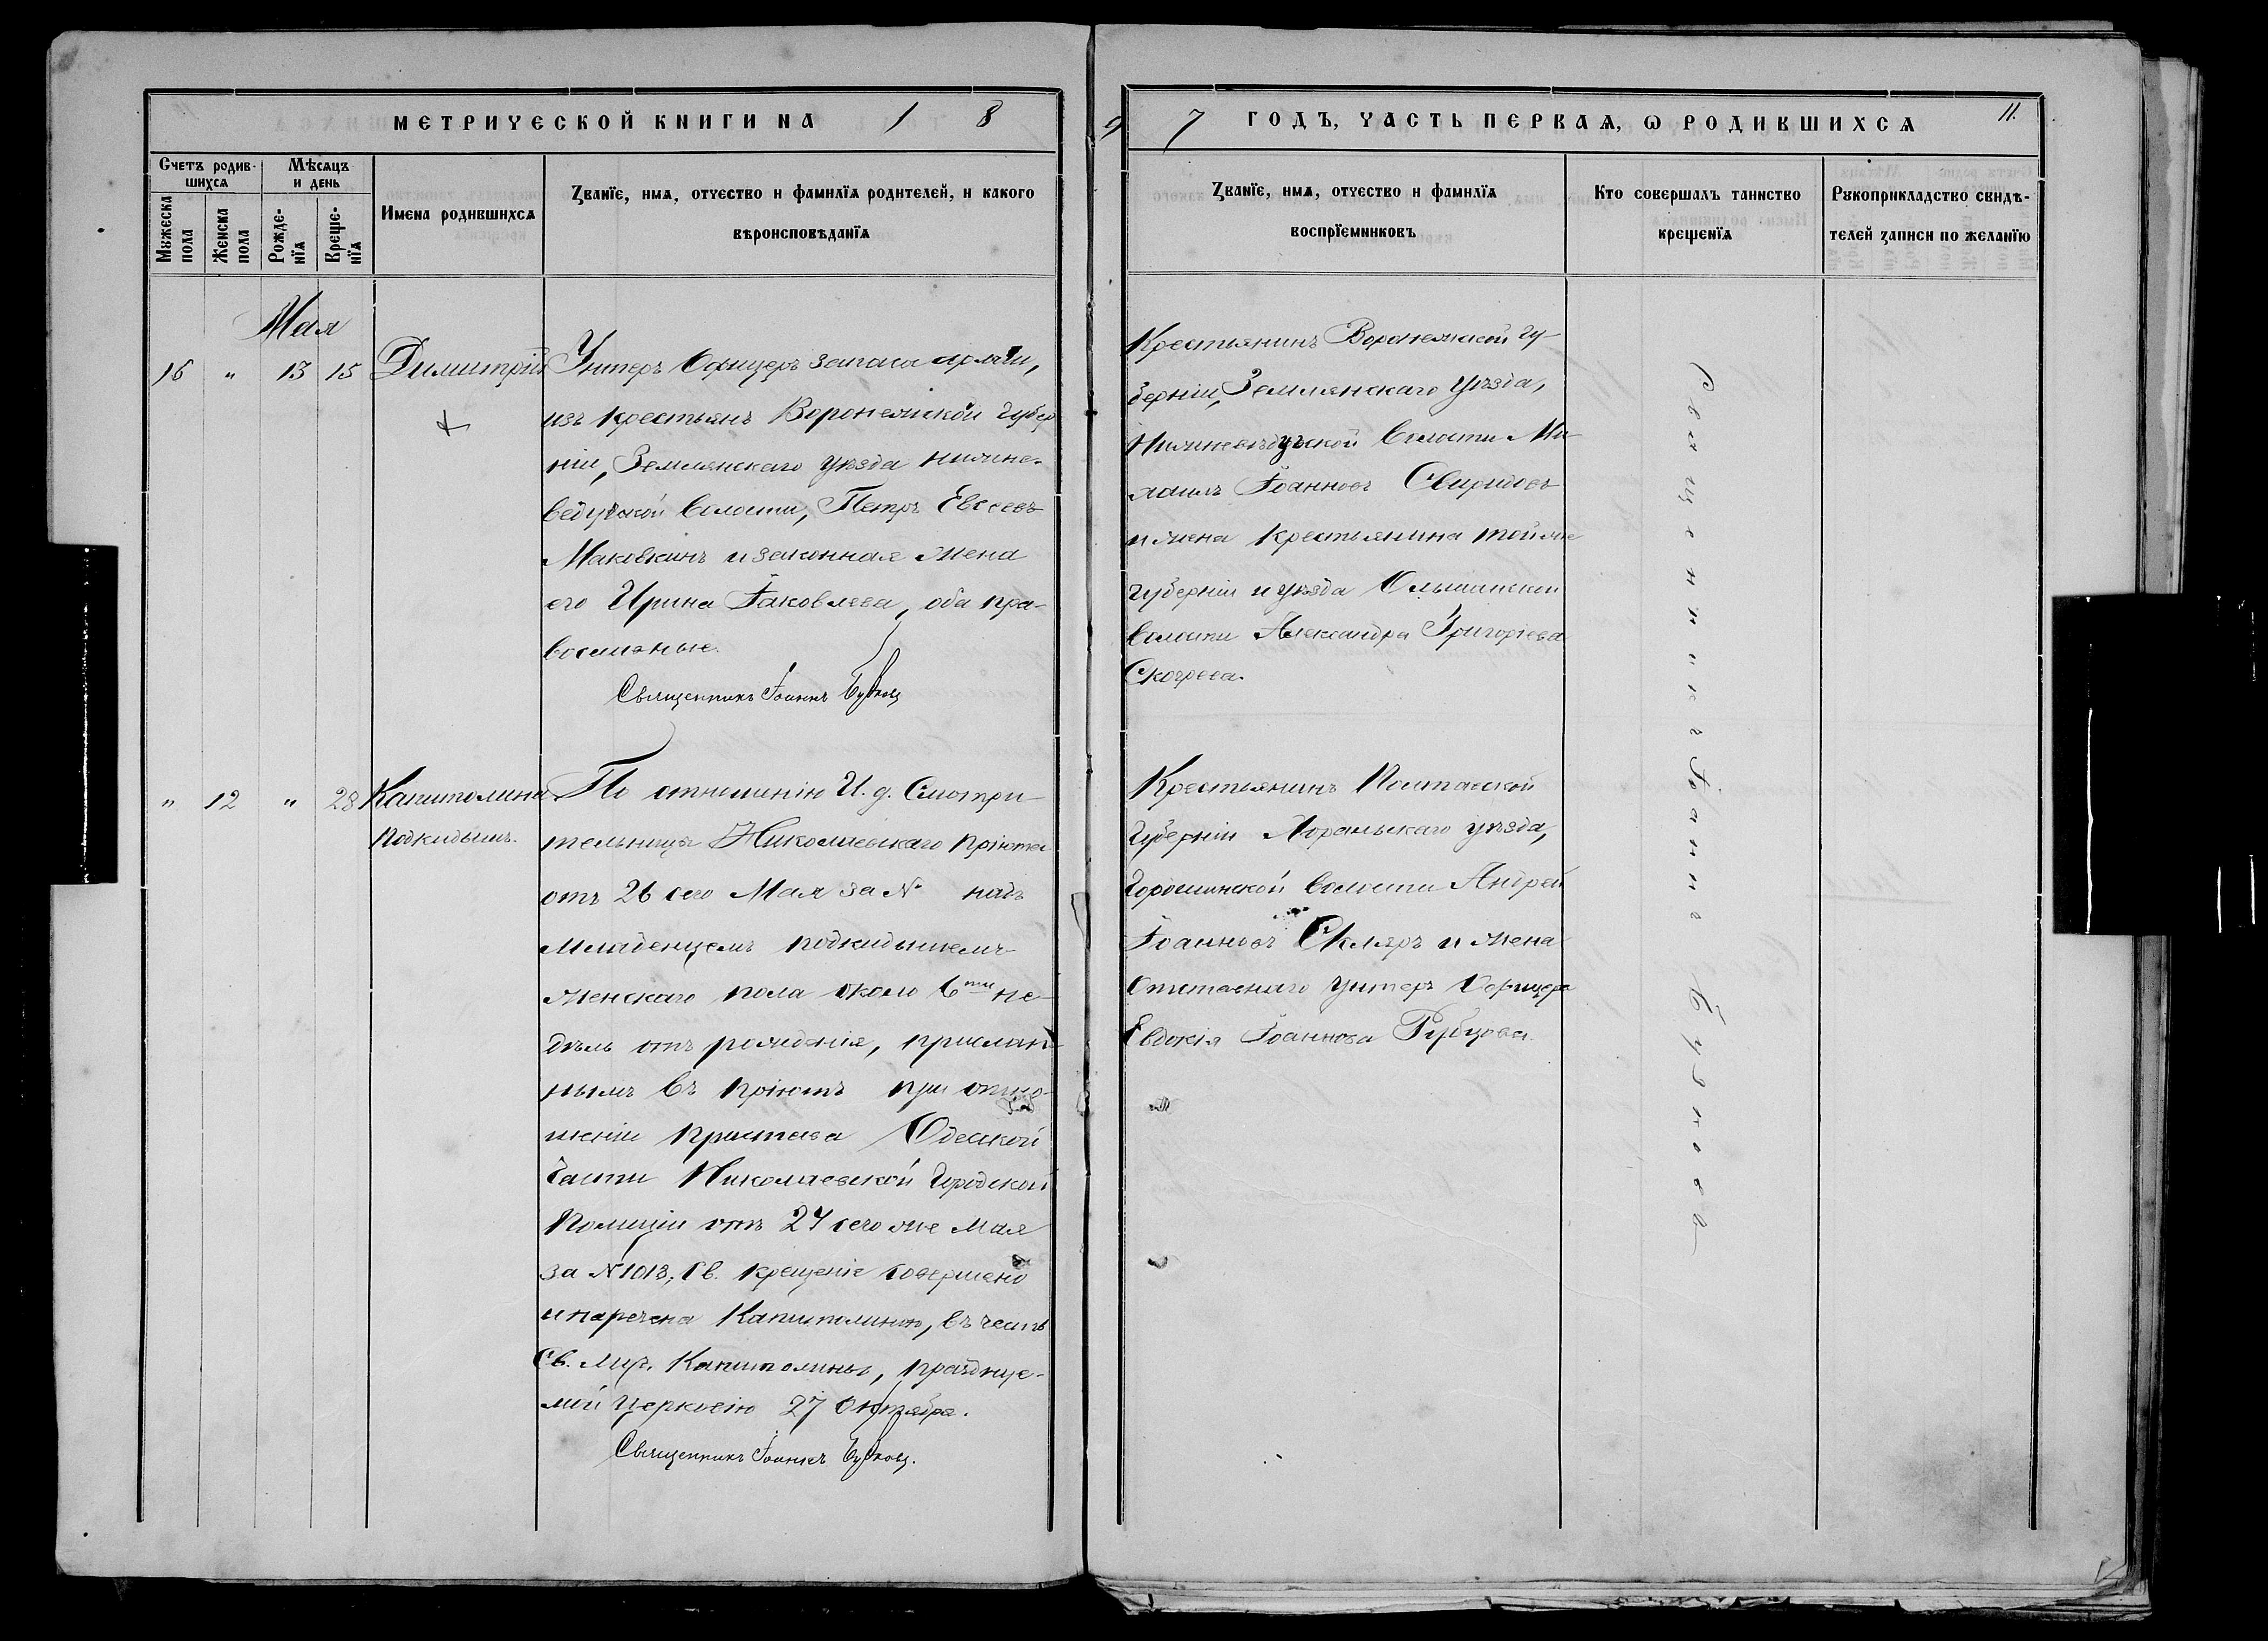 МЕТРИЧЕСКОЙ КНИГИ НА 1 8
9 7 ГОДЪ, ЧАСТЬ ПЕРВАѦ, Ѡ РОДИВШИХСѦ
11.
Счетъ родив-
шихсѧ
Мѣсѧцъ
и день
Мꙋжеска
пола
Женска
пола
Рожде-
нїѧ
Креще-
нїѧ
Имена родившихсѧ
Званїе, имѧ, отчество и фамилїѧ родителей, и какого
вѣроисповѣданїѧ
Званїе, имѧ, отчество и фамилїѧ
воспрїемниковъ
Кто совершалъ таинство
крещенїѧ
Рꙋкоприкладство свидѣ-
телей записи по желанїю
Мая
16 " 13 15
Димитрій
Унтеръ Офицеръ запаса арміи,
изъ крестьянъ Воронежской губер
ніи, Землянскаго уѣзда Нижне-
ведугской волости, Петръ Евсеевъ
Маковкинъ и законная жена
его Ирина Іаковлева, оба пра-
вославные.
Священникъ Іоаннъ
Крестьянинъ Воронежской гу-
берніи, Землянскаго уѣзда,
волости Ми-
хаилъ Іоанновъ Свиридовъ
и жена крестьянина той же
губерніи и уѣзда Ольшанской
волости Александра Григоріева
" 12 " 28
Капитолина
подкидышъ.
По отношенію И. д. Смотри-
тельницы Николаевскаго пріюта
отъ 26 сего Мая за № надъ
младенцемъ подкидышемъ
женскаго пола около 6ти не-
дѣль отъ рожденія, прислан-
нымъ въ пріютъ при отно-
шеніи Пристава Одесской
части Николаевской Городской
Полиціи отъ 24 сего же мая
за № 1013, Св. крещеніе совершено
и наречена Капитолиною, въ честь
Св. муч. Капитолины, празднуе-
мой церковію 27 октября.
Священникъ Іоаннъ
Крестьянинъ Полтавской
губерніи Хорольскаго уѣзда,
Горошинской волости Андрей
Іоанновъ Скляръ и жена
отставнаго унтеръ Офицера
Евдокія Іоаннова Рубцова.
Священникъ Іоаннъ